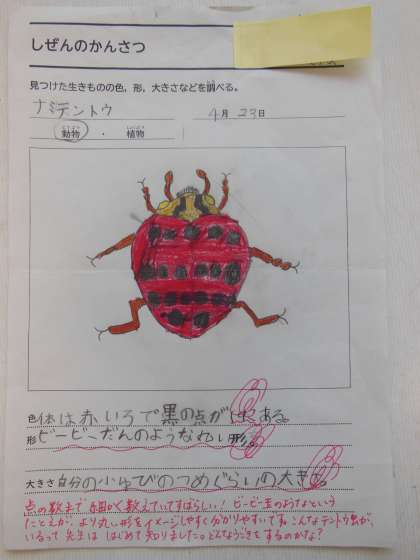 しぜんのかんさつ
見つけた生きものの色，形，大きさなどを調べる。
ナミテントウ
4月 23日
動物 ・ 植物
色 体は赤いろで黒の点が ある。
形 ビービーだんのような丸い形。
大きさ 自分の小ゆびのつめぐらいの大きさ
点の数まで細かく数えていてすばらしい！ビービー玉のようなという
たとえが、より丸い形をイメージしやすく分かりやすいですね。こんなテントウ虫が、
いるって先生は はじめて知りました。どんなうごきをするのかな？